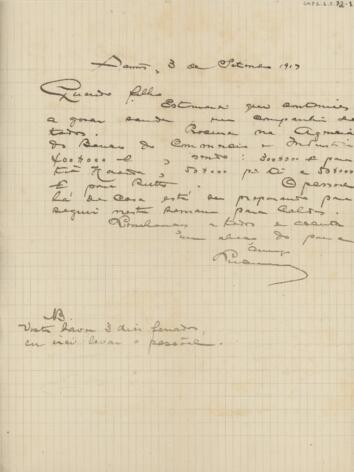 3 de Setembro 1917
Querido filho
Estimarei que continues
a gosar saude na companhia de
todos. Procura na Agencia
do Banco do Commercio e Industria
400$000 e, sendo: 300$000 e para
50$000 p. ti e 50$000
E para Ruth. O pessoal
lá de casa está se preparando para
seguir nesta semana para Caldas.
a todos e acceita
um abraço do pae e
amigo
NB.
Visto haver 3 dias feriados,
eu irei levar o pessoal.